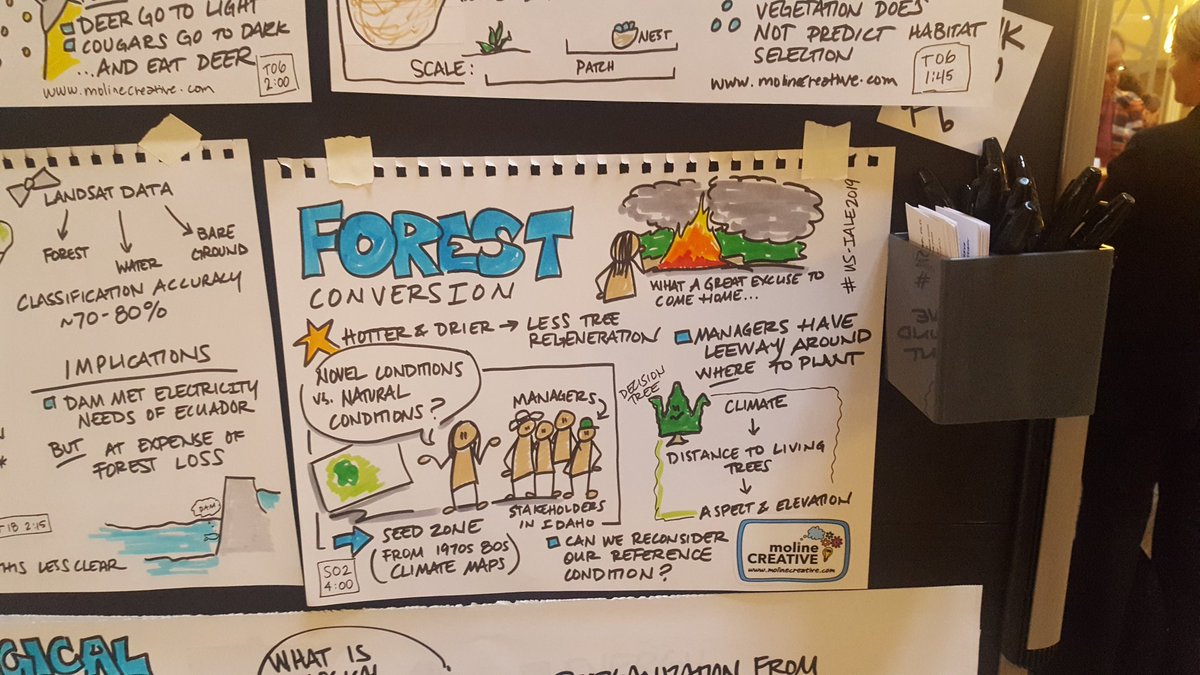 DEER GO TO LIGHT
COUGARS GO TO DARK
...AND EAT DEER
www.molinecreative.com
T06
2:00
NEST
SCALE:
PATCH
VEGETATION DOES
NOT PREDICT HABITAT
SELECTION
www.molinecreative.com
T06
1:45
LANDSAT DATA
FOREST
WATER
BARE
GROUND
CLASSIFICATION ACCURACY
~70-80%
IMPLICATIONS
DAM MET ELECTRICITY
NEEDS OF ECUADOR
BUT AT EXPENSE OF
FOREST LOSS
DAM
2:15
THIS LESS CLEAR
FOREST
CONVERSION
WHAT A GREAT EXCUSE TO
COME HOME...
#US-IALE2019
HOTTER & DRIER → LESS TREE
REGENERATION
MANAGERS HAVE
LEEWAY AROUND
WHERE TO PLANT
NOVEL CONDITIONS
vs. NATURAL
CONDITIONS?
MANAGERS
STAKEHOLDERS
IN IDAHO
DECISION
TREE
CLIMATE
↓
DISTANCE TO LIVING
TREES
↓
ASPECT & ELEVATION
SEED ZONE
(FROM 1970s 80s
CLIMATE MAPS)
CAN WE RECONSIDER
OUR REFERENCE
CONDITION?
S02
4:00
moline
CREATIVE
www.molinecreative.com
GICAL
WHAT IS